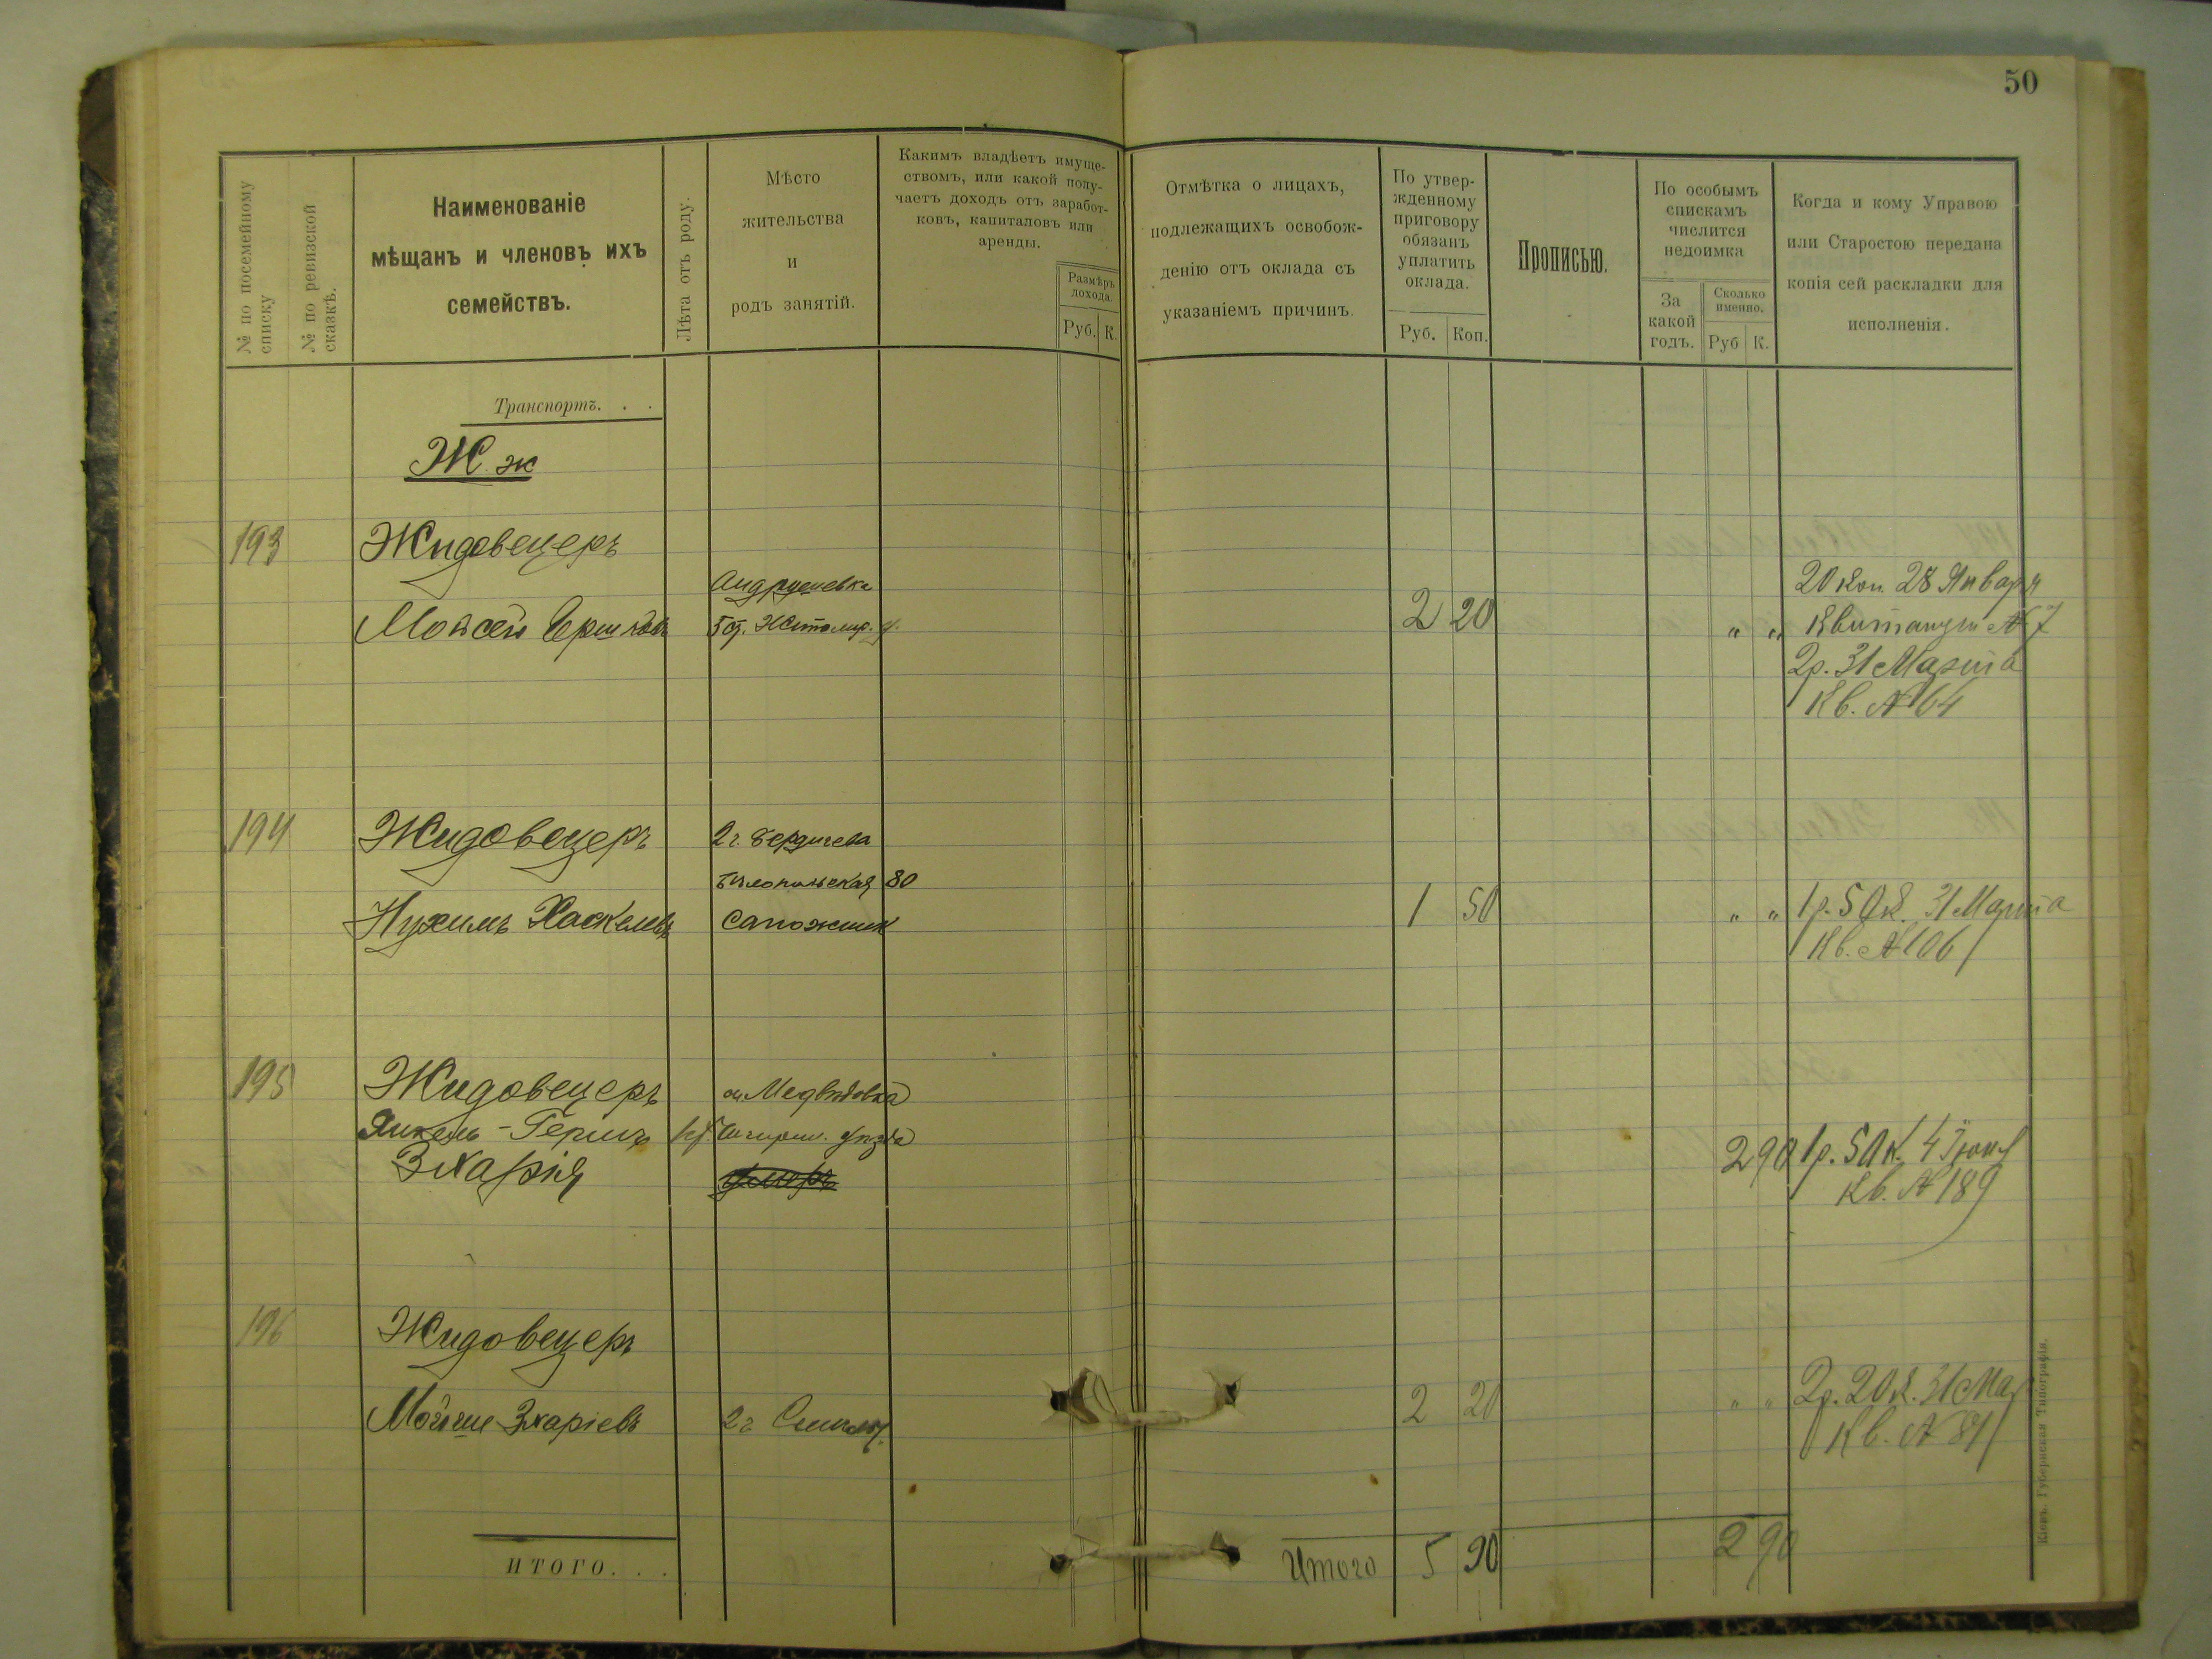 50
№ по посемейному списку
№ по ревизской сказкѣ.
Наименованіе
мѣщанъ и членовъ ихъ
семействъ.
Лѣта отъ роду.
Мѣсто
жительства
и
родъ занятій.
Какимъ владѣетъ имуще-
ствомъ, или какой полу-
чаетъ доходъ отъ заработ-
ковъ, капиталовъ или
аренды.
Размѣръ
дохода.
Руб. К.
Отмѣтка о лицахъ,
подлежащихъ освобож-
денію отъ оклада съ
указаніемъ причинъ.
По утвер-
жденному
приговору
обязанъ
уплатить
оклада.
Руб. Коп.
Прописью.
По особымъ
спискамъ
числится
недоимка
За
какой
годъ.
Сколько
именно.
Руб К.
Когда и кому Управою
или Старостою передана
копія сей раскладки для
исполненія.
Транспортъ. . .
Ж ж
193 Жидовецеръ
Андрушевка
20 коп. 28 Января
Мойсей Гершковъ Житомир. у. 2 20 " " Квитанціи № 7
2р. 31 Марта
Кв. № 64
194 Жидовецеръ 2 г. Бердичева
Бѣлопольская 80
Нухимъ Хаскелевъ Сапожник 1 50 " " 1 р. 50 к. 31 Марта
Кв. № 106
195 Жидовецеръ м. Медвѣдовка
Янкель-Гершъ Чигирин. уѣзда 2 90 1р. 50 к. 4 Іюня
Зхарія умеръ Кв. № 189
196 Жидовецеръ
Мойше Зхаріевъ 2 20 " " 2р. 20 к. 31 Мар
Кв. № 81
ИТОГО. . .
Итого 5 90 2 90
Кіевъ. Губернская Типографія.